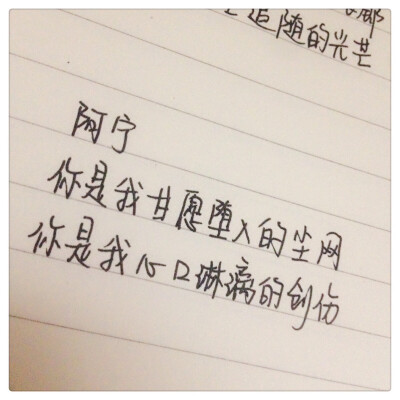 追随的光芒
阿宁
你是我甘愿堕入的尘网
你是我心口淋漓的创伤